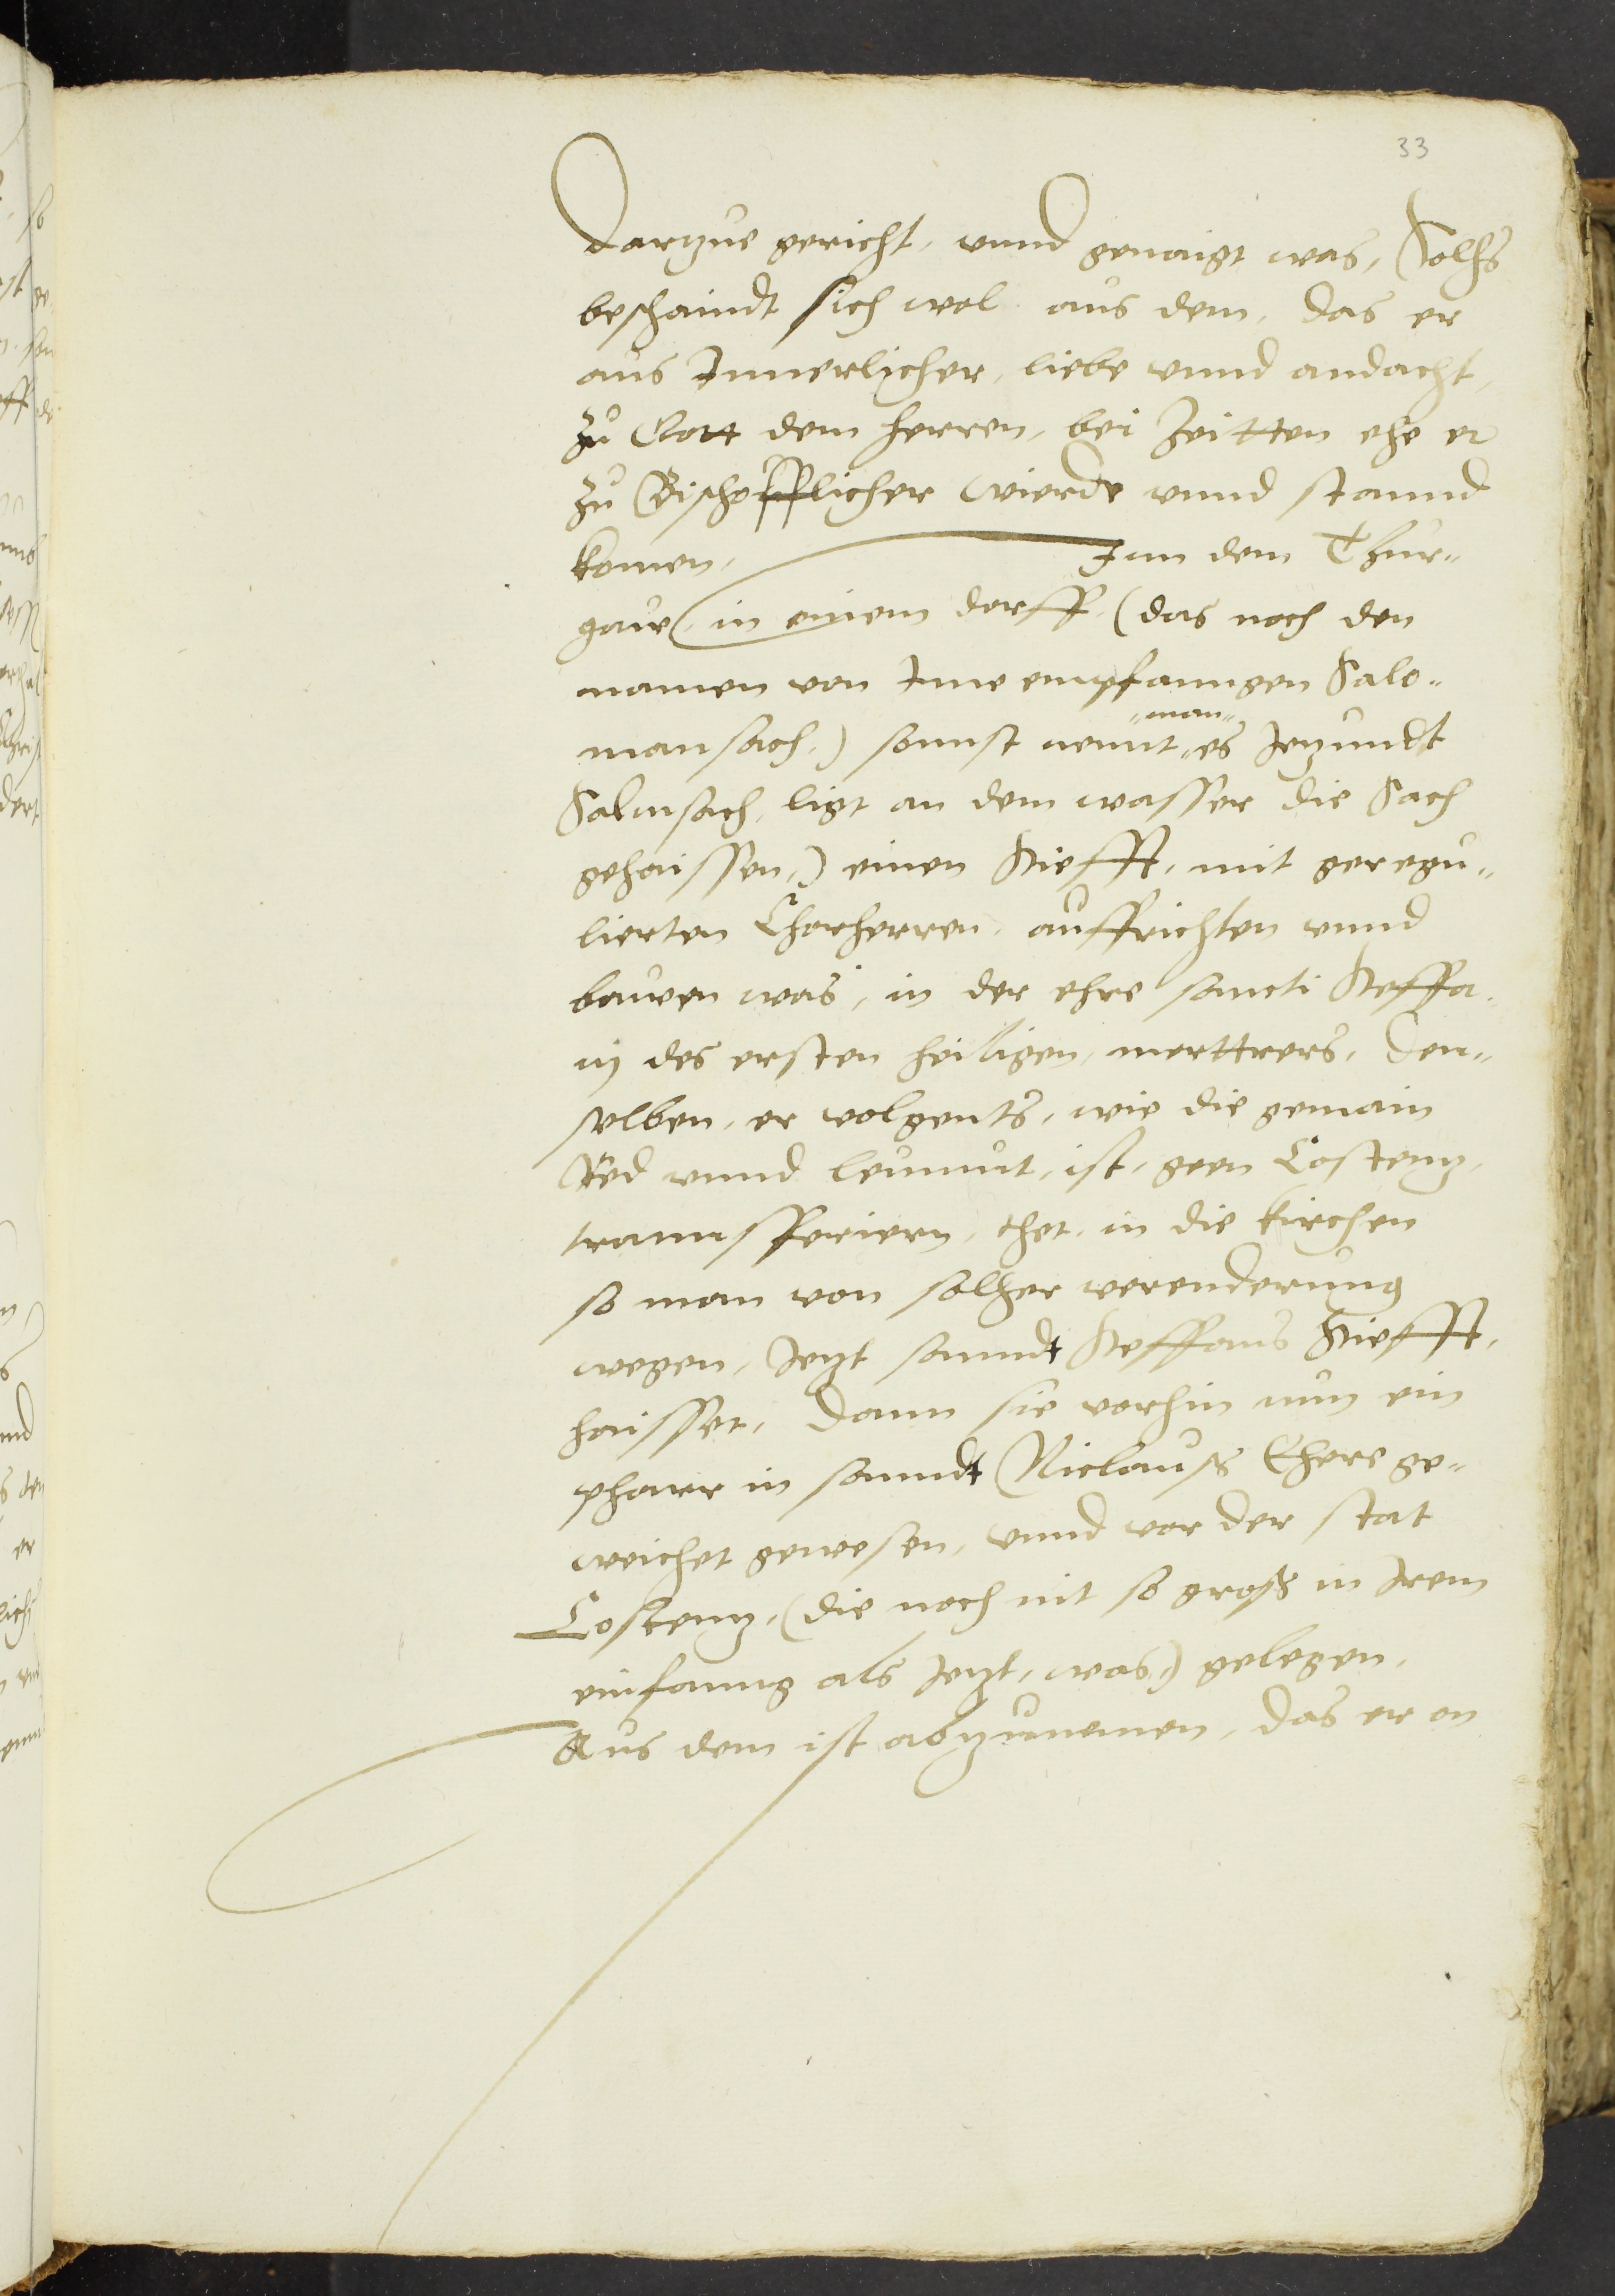 33
Darzue gericht, vnnd genaigt was, Solchs
beschaindt sich wol aus dem, das er
aus Innerlicher, liebe vnnd andacht,
zu Gott dem herren, bei Zeitten ehe er
zu Bischofflicher wierde vnnd stannd
komen, Inn dem Thur-
gaue, in einem dorff, (das noch den
namen von Ime empfanngen Salo-
mansach,) sonnst nennt "man" es Jetzundt
Salmsach, ligt an dem wasser die Sach
gehaissen,) einen Stiefft, mit geregu-
lierten Chorherren, auffrichten vnnd
bauen was, in der ehre sancti Steffa-
nj des ersten heiligen, merttrers, Den-
selben, er volgents, wie die gemain
Red vnnd leumut, ist, geen Costenz,
trannsferiern, thet, in die kirchen
so man von solher verenderung
wegen, Jetzt sanndt Steffans Stiefft,
haisset, Dann sie vorhin nun ein
pharr in sanndt Niclauß Ehere ge-
weichet gewesen, vnnd vor der stat
Costenz, (die noch nit so groß in Irem
einfanng als Jetzt, was,) gelegen,
Aus dem ist abzunemen, das er on